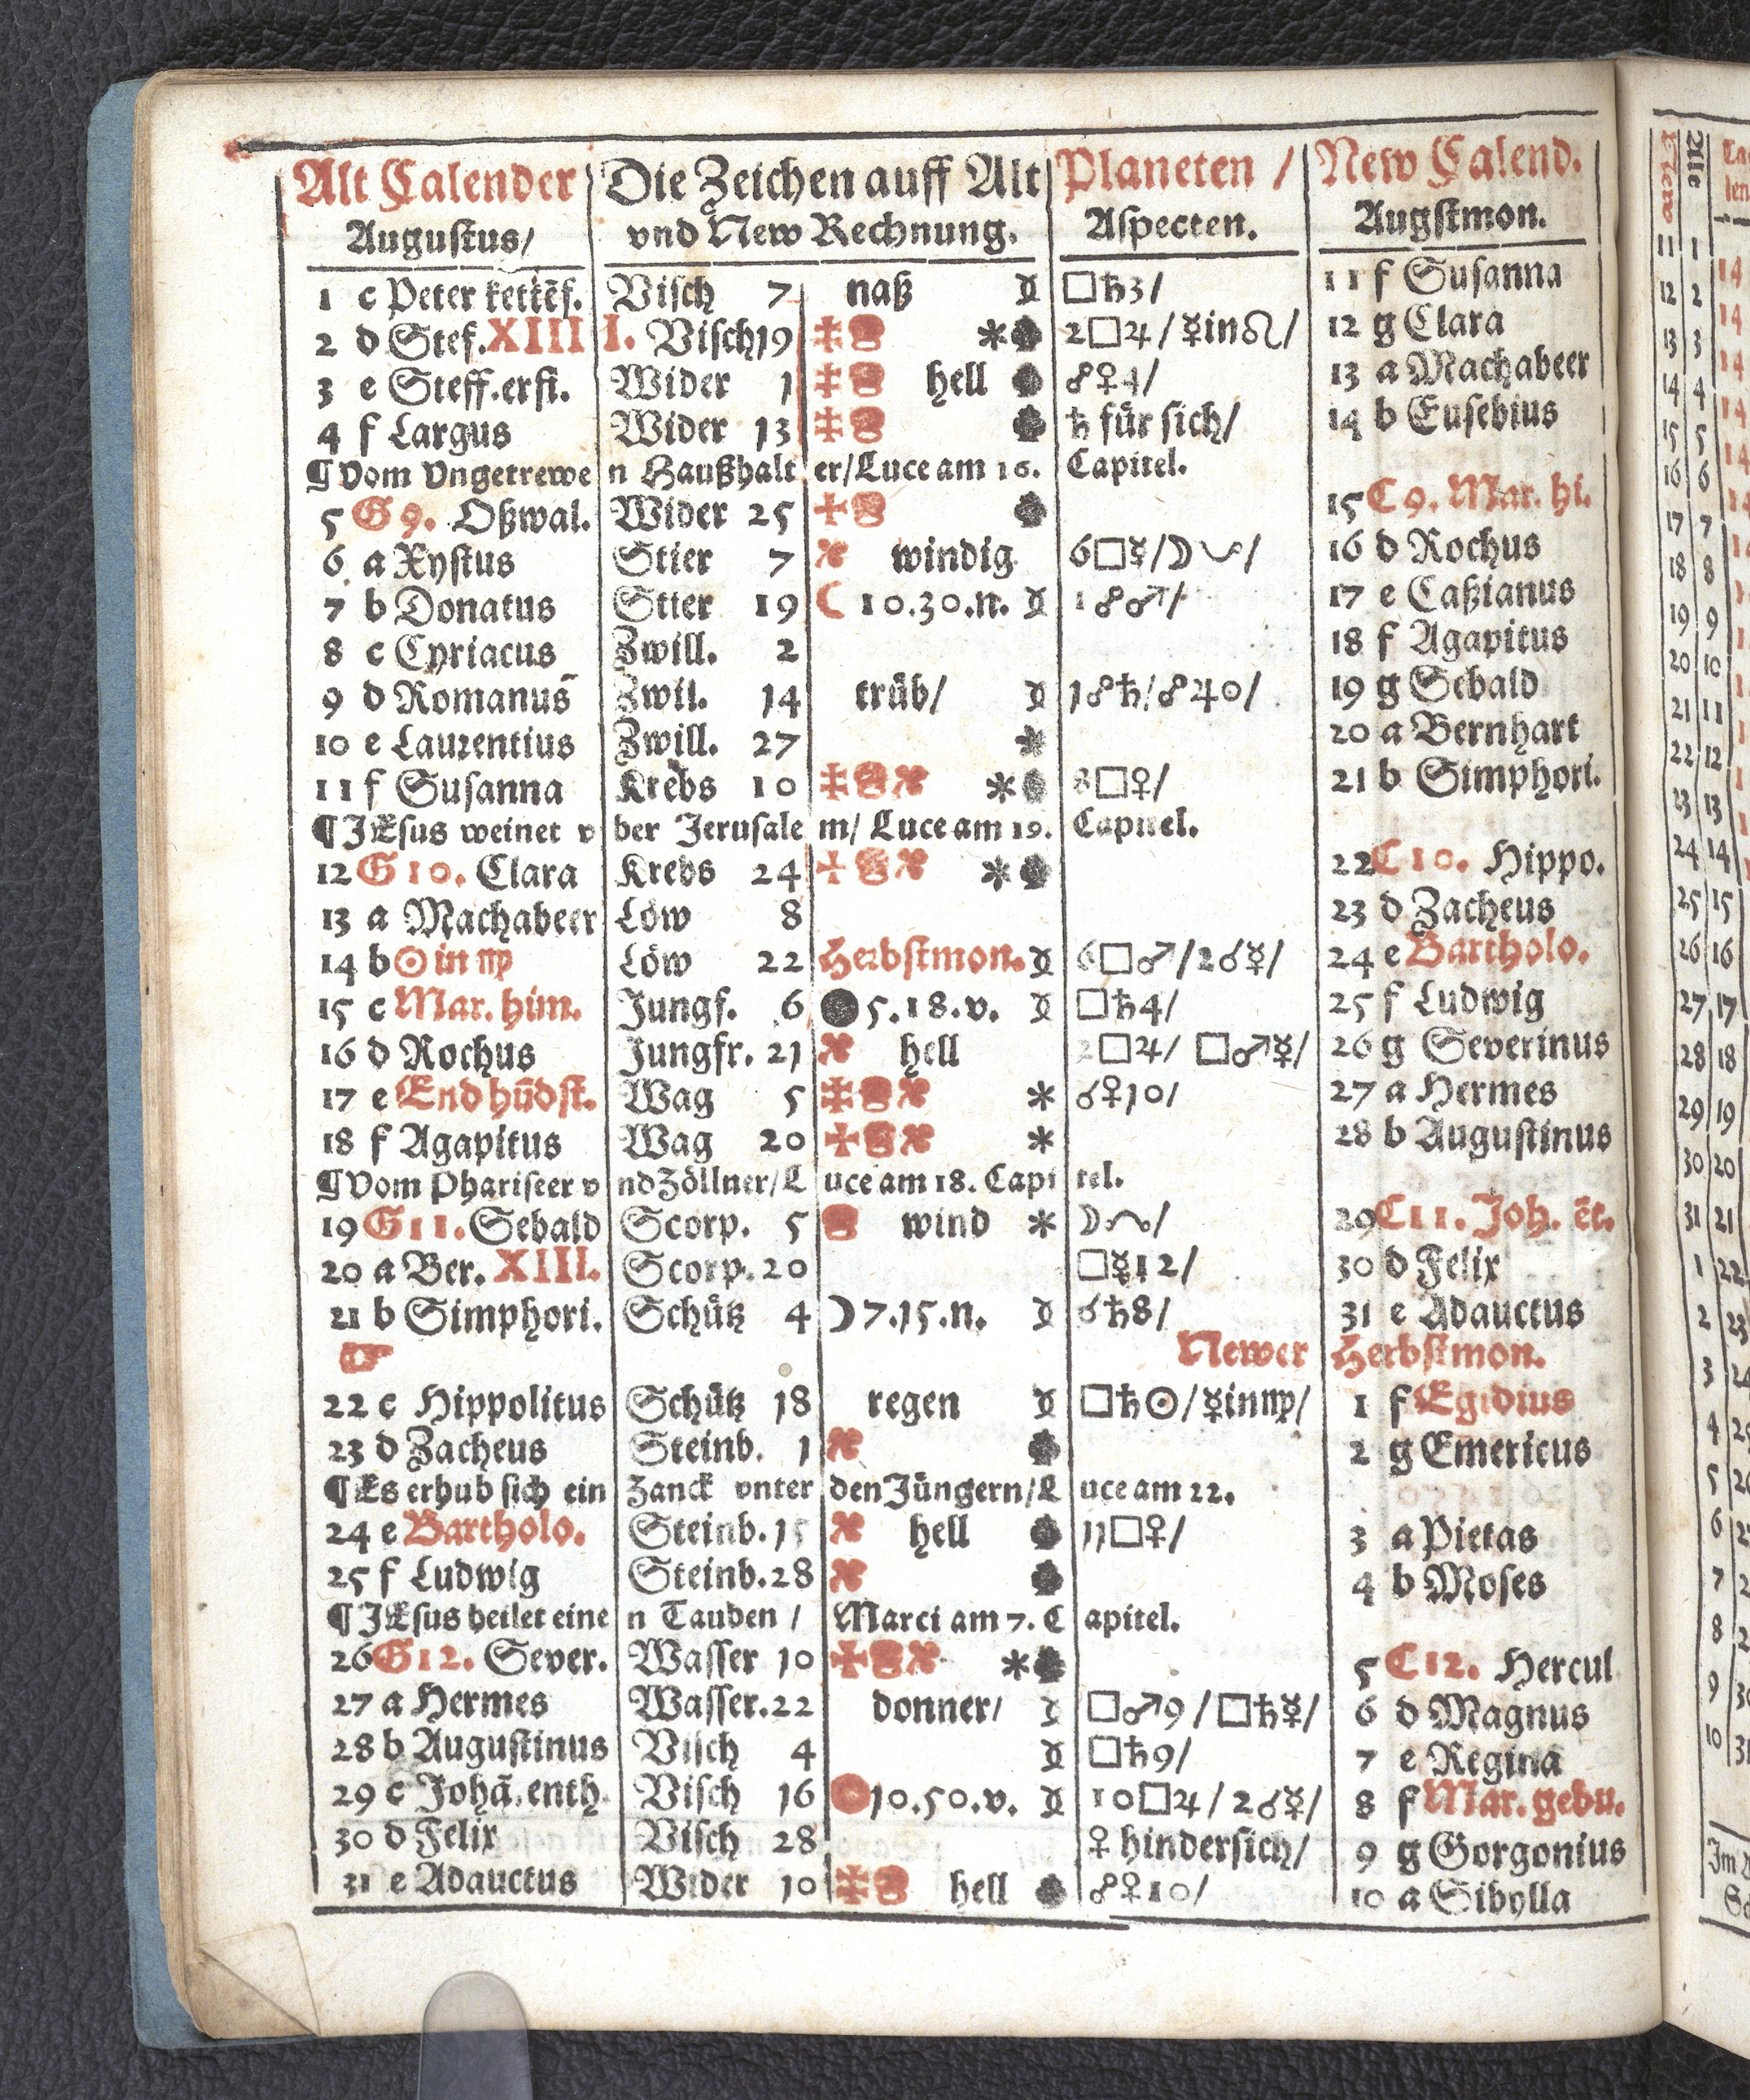 Alt Calender Die Zeichen auff Alt Planeten / New Calend.
Augustus/ vnd New Rechnung. Aspecten. Augstmon.
1 c Peter kettēf. Visch 7 naß □♄3/ 11 f Susanna
2 d Stef. XIIII. Visch 19 2□♃/☿in♌/ 12 g Clara
3 e Steff.erfi. Wider 1 hell ☍♀4/ 13 a Machabeer
4 f Largus Wider 13 ♄ für sich/ 14 b Eusebius
¶Vom Vngetrewen Haußhalter/Luce am 16. Capitel.
5 G 9. Oßwal. Wider 25 15 C 9. Mar. hi.
6 a Xystus Stier 7 windig 6□☿/☽☋/ 16 d Rochus
7 b Donatus Stier 19 ☾ 10.30.n. 1☍♂/ 17 e Caßianus
8 c Cyriacus Zwill. 2 18 f Agapitus
9 d Romanus Zwil. 14 trüb/ 1☍♄/☍♃☉/ 19 g Sebald
10 e Laurentius Zwill. 27 ✶ 20 a Bernhart
11 f Susanna Krebs 10 ✶ 8□♀/ 21 b Simphori.
¶JEsus weinet vber Jerusalem/ Luce am 19. Capitel.
12 G 10. Clara Krebs 24 ✶ 22 C 10. Hippo.
13 a Machabeer Löw 8 23 d Zacheus
14 b ☉ in ♍ Löw 22 Herbstmon. 6□♂/2☌☿/ 24 e Bartholo.
15 c Mar. him. Jungf. 6 ● 5.18.v. □♄4/ 25 f Ludwig
16 d Rochus Jungfr. 21 hell 2□♃/ □♂☿/ 26 g Severinus
17 e End hūdst. Wag 5 ✶ ☌♀10/ 27 a Hermes
18 f Agapitus Wag 20 ✶ 28 b Augustinus
¶Vom Phariseer vnd Zöllner/Luce am 18. Capitel.
19 G 11. Sebald Scorp. 5 wind ✶ ☽☊/ 29 C 11. Joh. ēt.
20 a Ber. XIII. Scorp. 20 □☿12/ 30 d Felix
21 b Simphori. Schütz 4 ☽ 7.15.n. ☌♄8/ 31 e Adauctus
☞ Newer Herbstmon.
22 c Hippolitus Schütz 18 regen □♄☉/☿in♍/ 1 f Egidius
23 d Zacheus Steinb. 1 2 g Emericus
¶Es erhub sich ein Zanck vnter den Jüngern/Luce am 22.
24 e Bartholo. Steinb. 15 hell 11□♀/ 3 a Pietas
25 f Ludwig Steinb. 28 4 b Moses
¶JEsus heilet einen Tauben / Marci am 7. Capitel.
26 G 12. Sever. Wasser 10 ✶ 5 C 12. Hercul
27 a Hermes Wasser. 22 donner/ □♂9/□♄☿/ 6 d Magnus
28 b Augustinus Visch 4 □♄9/ 7 e Regina
29 c Johā. enth. Visch 16 10.50.v. 10□♃/2☌☿/ 8 f Mar. gebu.
30 d Felix Visch 28 ♀ hindersich/ 9 g Gorgonius
31 e Adauctus Wider 10 hell ☍♀10/ 10 a Sibylla